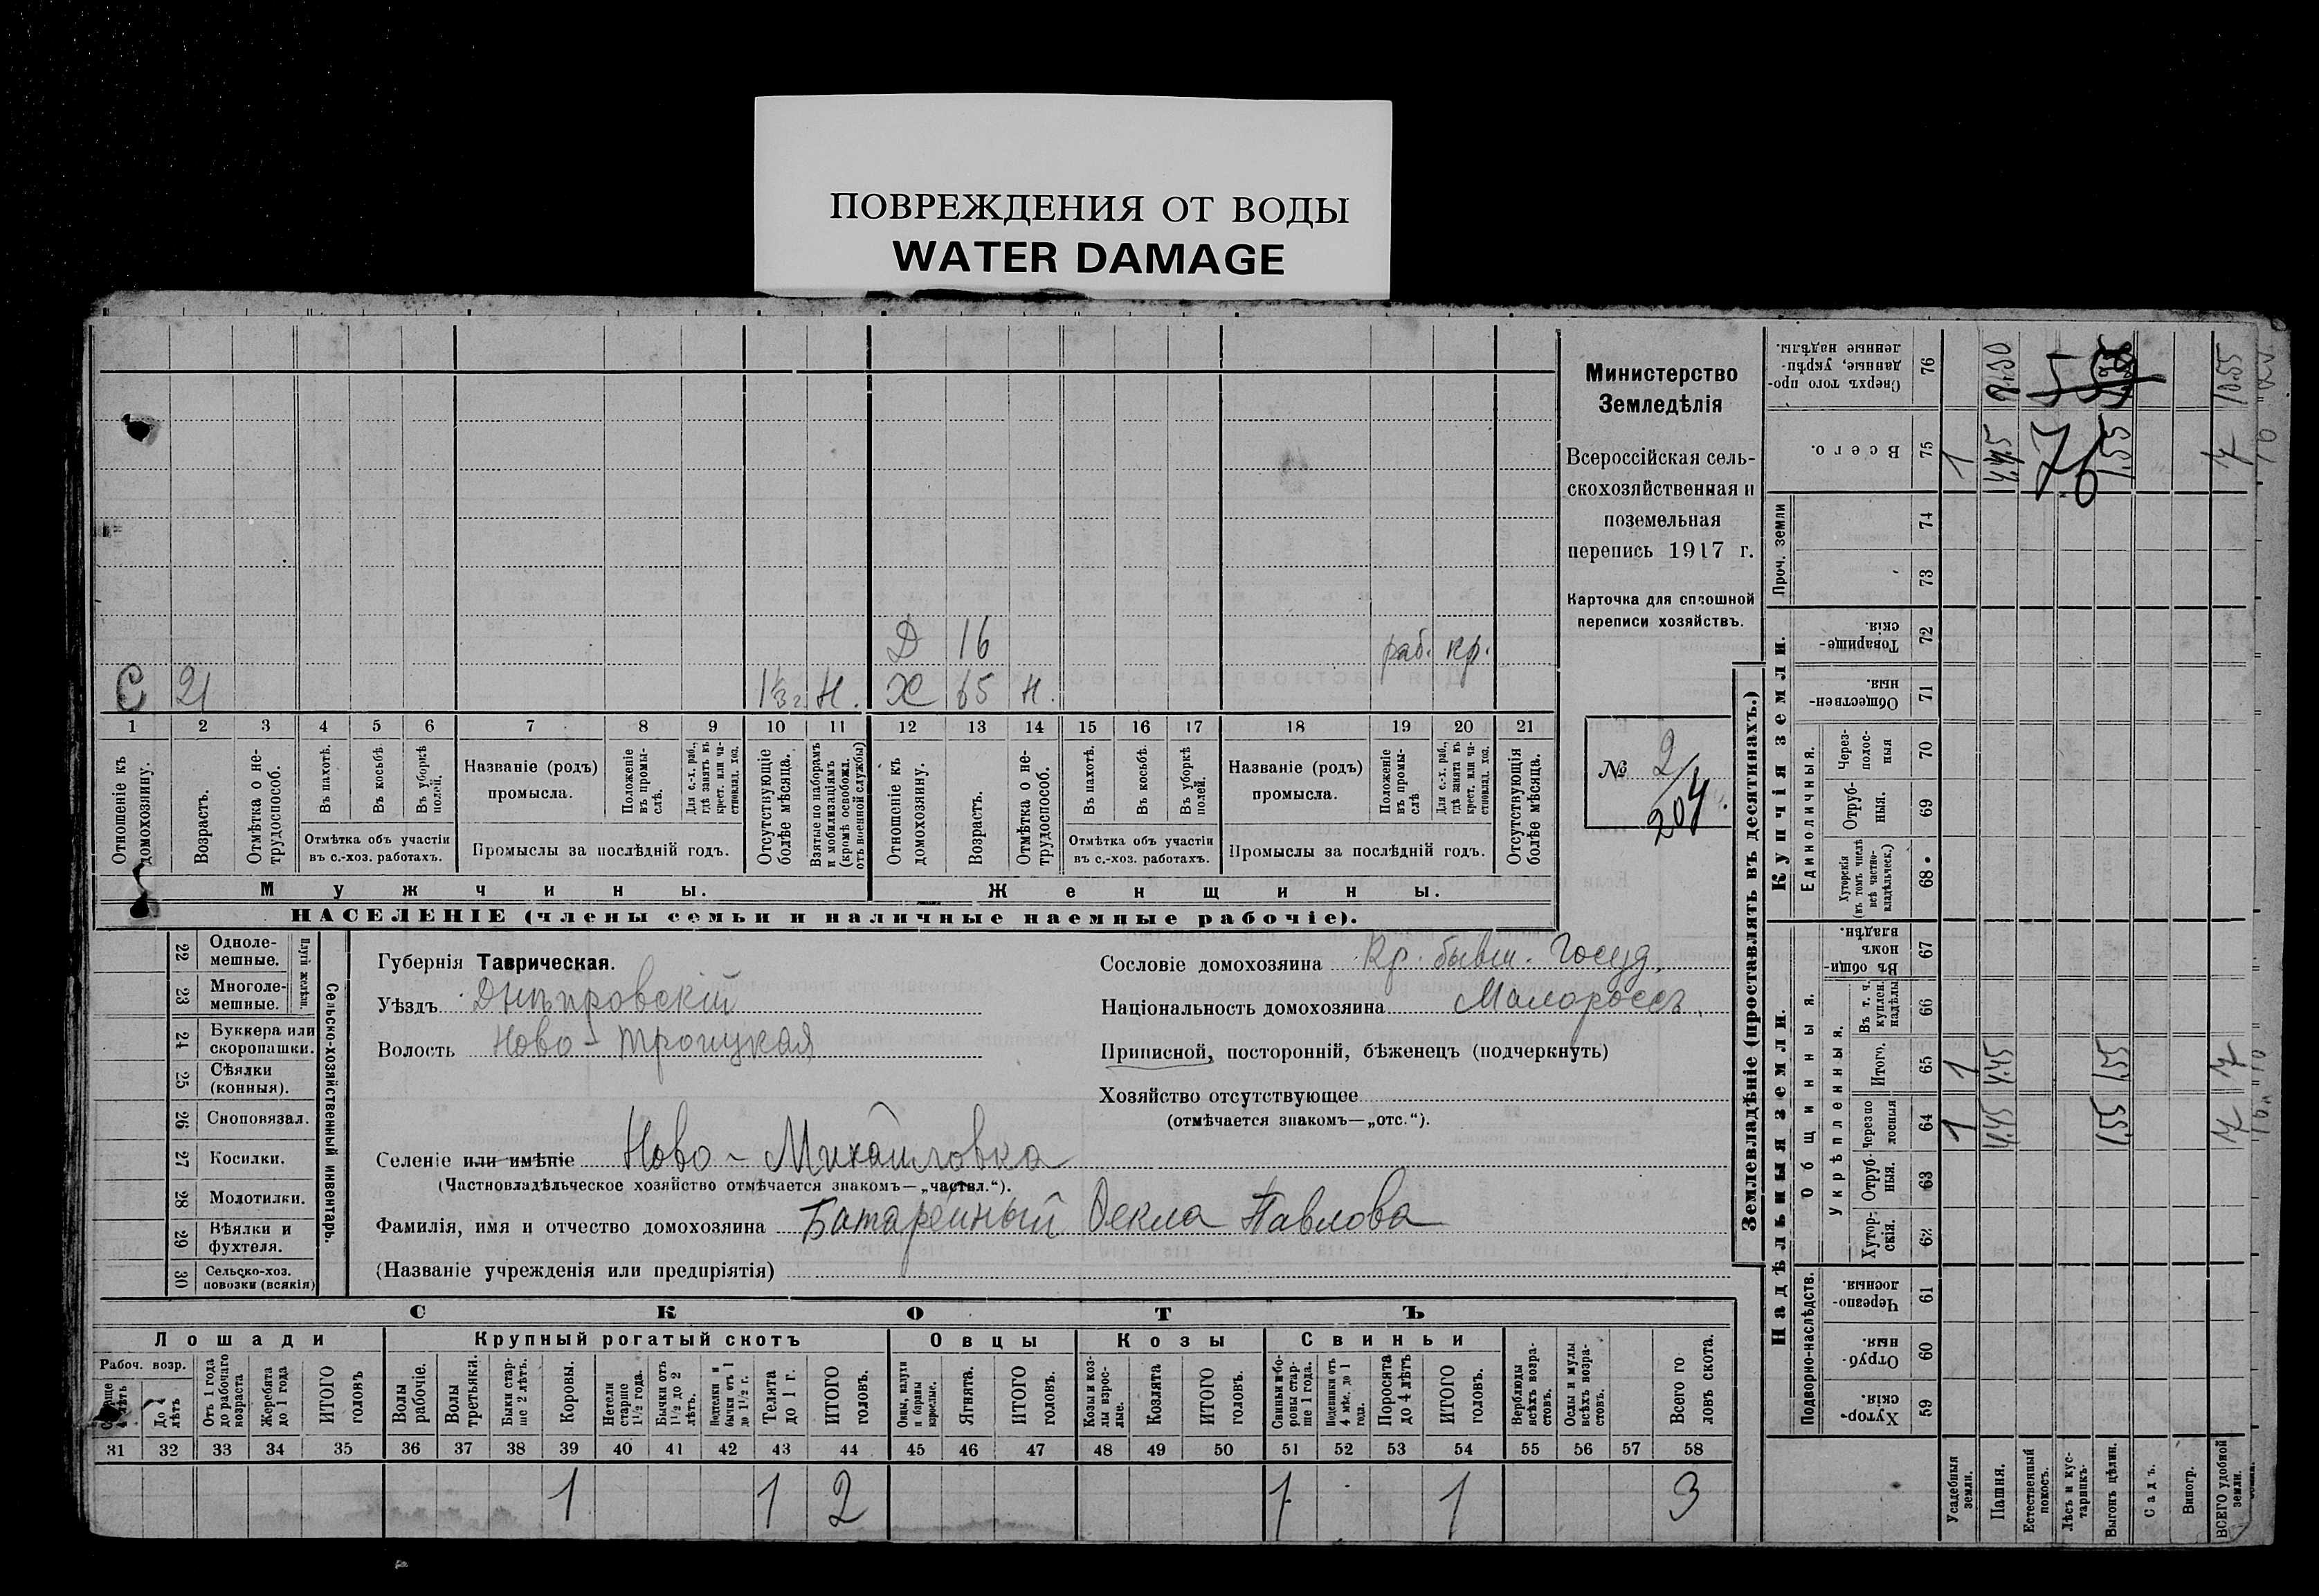 ПОВРЕЖДЕНИЯ ОТ ВОДЫ
WATER DAMAGE
Министерство
Земледѣлія
Всероссійская сель-
скохозяйственная и
поземельная
перепись 1917 г.
Карточка для сплошной
переписи хозяйствъ.
№ 2/204.
Д 16 раб. кр.
С 21 1⅓ г. Н. Х 65 Н.
1 2 3 4 5 6 7 8 9 10 11 12 13 14 15 16 17 18 19 20 21
Отношеніе къ домохозяину.
Возрастъ.
Отмѣтка о не-трудоспособ.
Въ пахотѣ.
Въ косьбѣ.
Въ уборкѣ полей.
Отмѣтка объ участіи
въ с.-хоз. работахъ.
Названіе (родъ)
промысла.
Положеніе въ промы-слѣ.
Для с.-х. раб., гдѣ занятъ въ крест. или ча-стновлад. хоз.
Промыслы за послѣдній годъ.
Отсутствующіе болѣе мѣсяца.
Взятые по наборамъ и мобилизаціямъ (кромѣ освобожд. отъ военной службы)
Отношеніе къ домохозяину.
Возрастъ.
Отмѣтка о не-трудоспособ.
Въ пахотѣ.
Въ косьбѣ.
Въ уборкѣ полей.
Отмѣтка объ участіи
въ с.-хоз. работахъ.
Названіе (родъ)
промысла.
Положеніе въ промы-слѣ
Для с.-х. раб., гдѣ занята въ крест. или ча-стновлад. хоз.
Промыслы за послѣдній годъ.
Отсутствующія болѣе мѣсяца.
Мужчины.
Женщины.
НАСЕЛЕНІЕ (члены семьи и наличные наемные рабочіе).
22 Одноле-мешные.
23 Многоле-мешные.
Плуги желѣзн.
24 Буккера или скоропашки.
25 Сѣялки (конныя).
26 Сноповязал.
27 Косилки.
28 Молотилки.
29 Вѣялки и фухтеля.
30 Сельско-хоз. повозки (всякія)
Сельско-хозяйственный инвентарь.
Губернія Таврическая.
Уѣздъ Днѣпровскій
Волость Ново-Троицкая
Сословіе домохозяина Кр. бывш. Госуд.
Національность домохозяина Малороссъ.
Приписной, посторонній, бѣженецъ (подчеркнуть)
Хозяйство отсутствующее
(отмѣчается знакомъ—„отс.“).
Селеніе или имѣніе Ново-Михайловка
(Частновладѣльческое хозяйство отмѣчается знакомъ—„частвл.“).
Фамилія, имя и отчество домохозяина Батарейный Фекла Павлова
(Названіе учрежденія или предпріятія)
СКОТЪ
Лошади
Крупный рогатый скотъ
Овцы
Козы
Свиньи
Рабоч. возр.
До 4 лѣтъ
Отъ 1 года до рабочаго возраста
Жеребята до 1 года
ИТОГО головъ
Волы рабочіе.
Волы третьяки.
Быки стар-ше 2 лѣтъ.
Коровы.
Нетели старше 1½ года.
Бычки отъ 1½ до 2 лѣтъ.
бычки отъ 1 до 1½ г.
Телята до 1 г.
ИТОГО головъ.
Овцы, валухи и бараны взрослые.
Ягнята.
ИТОГО головъ.
Козы и коз-лы взрос-лые.
Козлята
ИТОГО головъ.
Свиньи и бо-ровы стар-ше 1 года.
Подсвинки отъ 4 мѣс. до 1 года.
Поросята до 4 лѣтъ
ИТОГО головъ.
Верблюды всѣхъ возра-стовъ.
Ослы и мулы всѣхъ возра-стовъ.
Всего го ловъ скота.
31 32 33 34 35 36 37 38 39 40 41 42 43 44 45 46 47 48 49 50 51 52 53 54 55 56 57 58
1 1 2 1 1 3
Землевладѣніе (проставлять въ десятинахъ.)
Надѣльныя земли.
Купчія земли.
Проч. земли
Подворно-наслѣдств.
Общинныя.
Укрѣпленныя.
Единоличныя.
59 Хутор-скія.
60 Отруб-ныя.
61 Черезпо-лосныя.
62 Хутор-скія.
63 Отруб-ныя.
64 Черезпо лосныя
65 Итого.
66 Въ т. ч. куплен. надѣлы
67 Въ общи-номъ владѣн.
68 Хуторскія (въ томъ числѣ всѣ частно-владѣльческ.)
69 Отруб-ныя.
70 Через-полос-ныя
71 Обществен-ныя.
72 Товарище-скія.
73
74
75 Всего.
76 Сверхъ того про-данные, укрѣп-ленные надѣлы.
Усадебныя земли.
Пашня.
Естественный покосъ.
Лѣсъ и кус-тарникъ.
Выгонъ цѣлин.
Садъ.
Виногр.
ВСЕГО удобной земли.
1 4.45 1.55 7
1 4.45 1.55 7
1 4.45 1.55 7
10.55